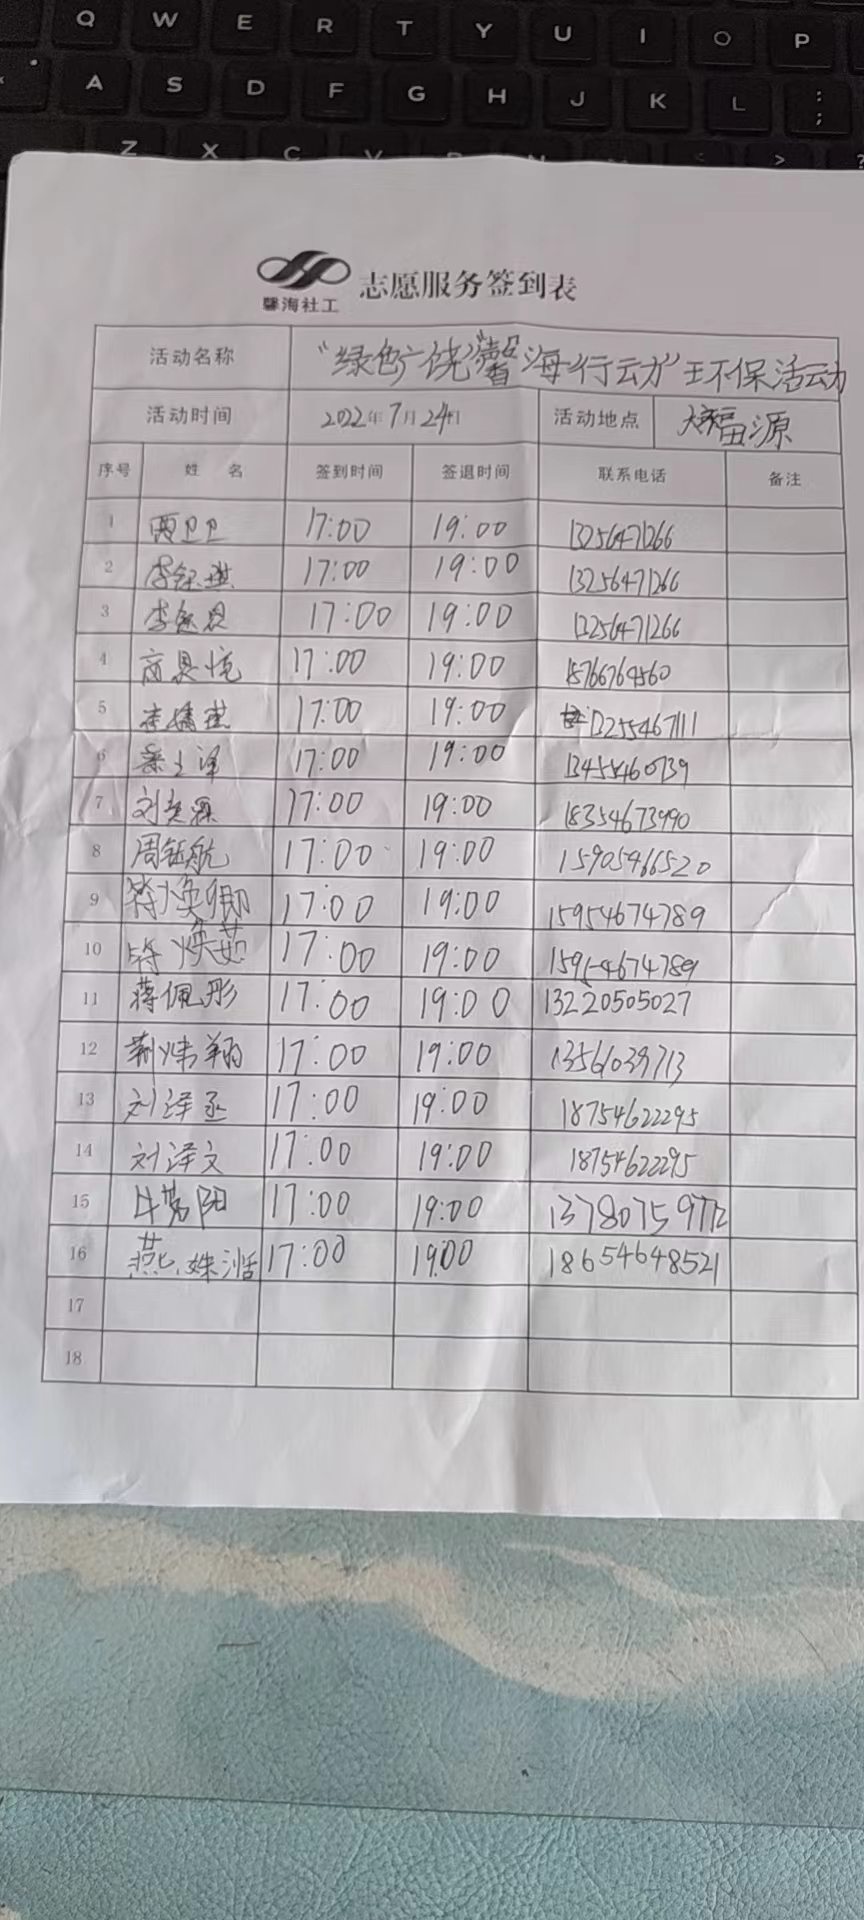 Q W E R T Y U I O P
A S D F G H J K L ; :
Z X C V
馨海社工 志愿服务签到表
活动名称 “绿色广饶 馨海行动”环保活动
活动时间 2022年7月24日 活动地点 福源
序号 姓 名 签到时间 签退时间 联系电话 备注
1 17:00 19:00 13256471266
2 李钰琪 17:00 19:00 13256471266
3 17:00 19:00 13256471266
4 17:00 19:00 15766764560
5 17:00 19:00 13255467111
6 17:00 19:00
7 17:00 19:00 18354673990
8 周钰航 17:00 19:00 15905466520
9 符焕卿 17:00 19:00 15954674789
10 符焕茹 17:00 19:00 15954674789
11 蒋佩彤 17:00 19:00 13220505027
12 荆炜翔 17:00 19:00 13561039713
13 刘泽丞 17:00 19:00 18754622295
14 刘泽文 17:00 19:00 18754622295
15 17:00 19:00
16 燕姝湉 17:00 19:00 18654648521
17
18